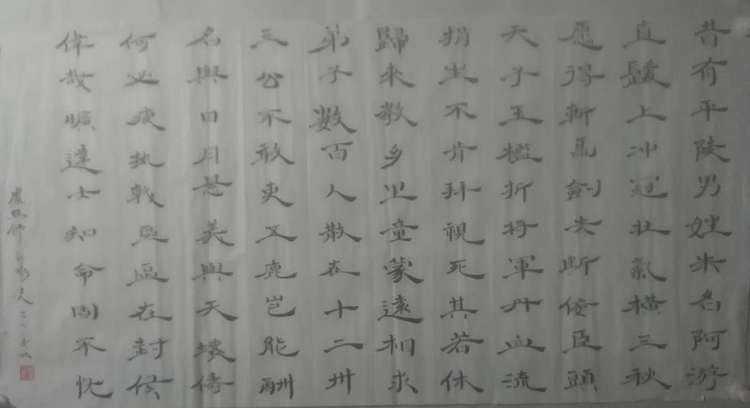 昔有平陵男姓朱名阿游
直髮上冲冠壮氣横三秋
愿得斬馬劍先断佞臣頭
天子玉檻折将軍丹血流
捐生不肯拜視死其若休
歸來教乡里童蒙遠相求
弟子數百人散在十二州
三公不敢吏五鹿岂能酬
名與日月悬義與天壤俦
何必疲执戟區區在封侯
偉哉曠達士知命固不忧